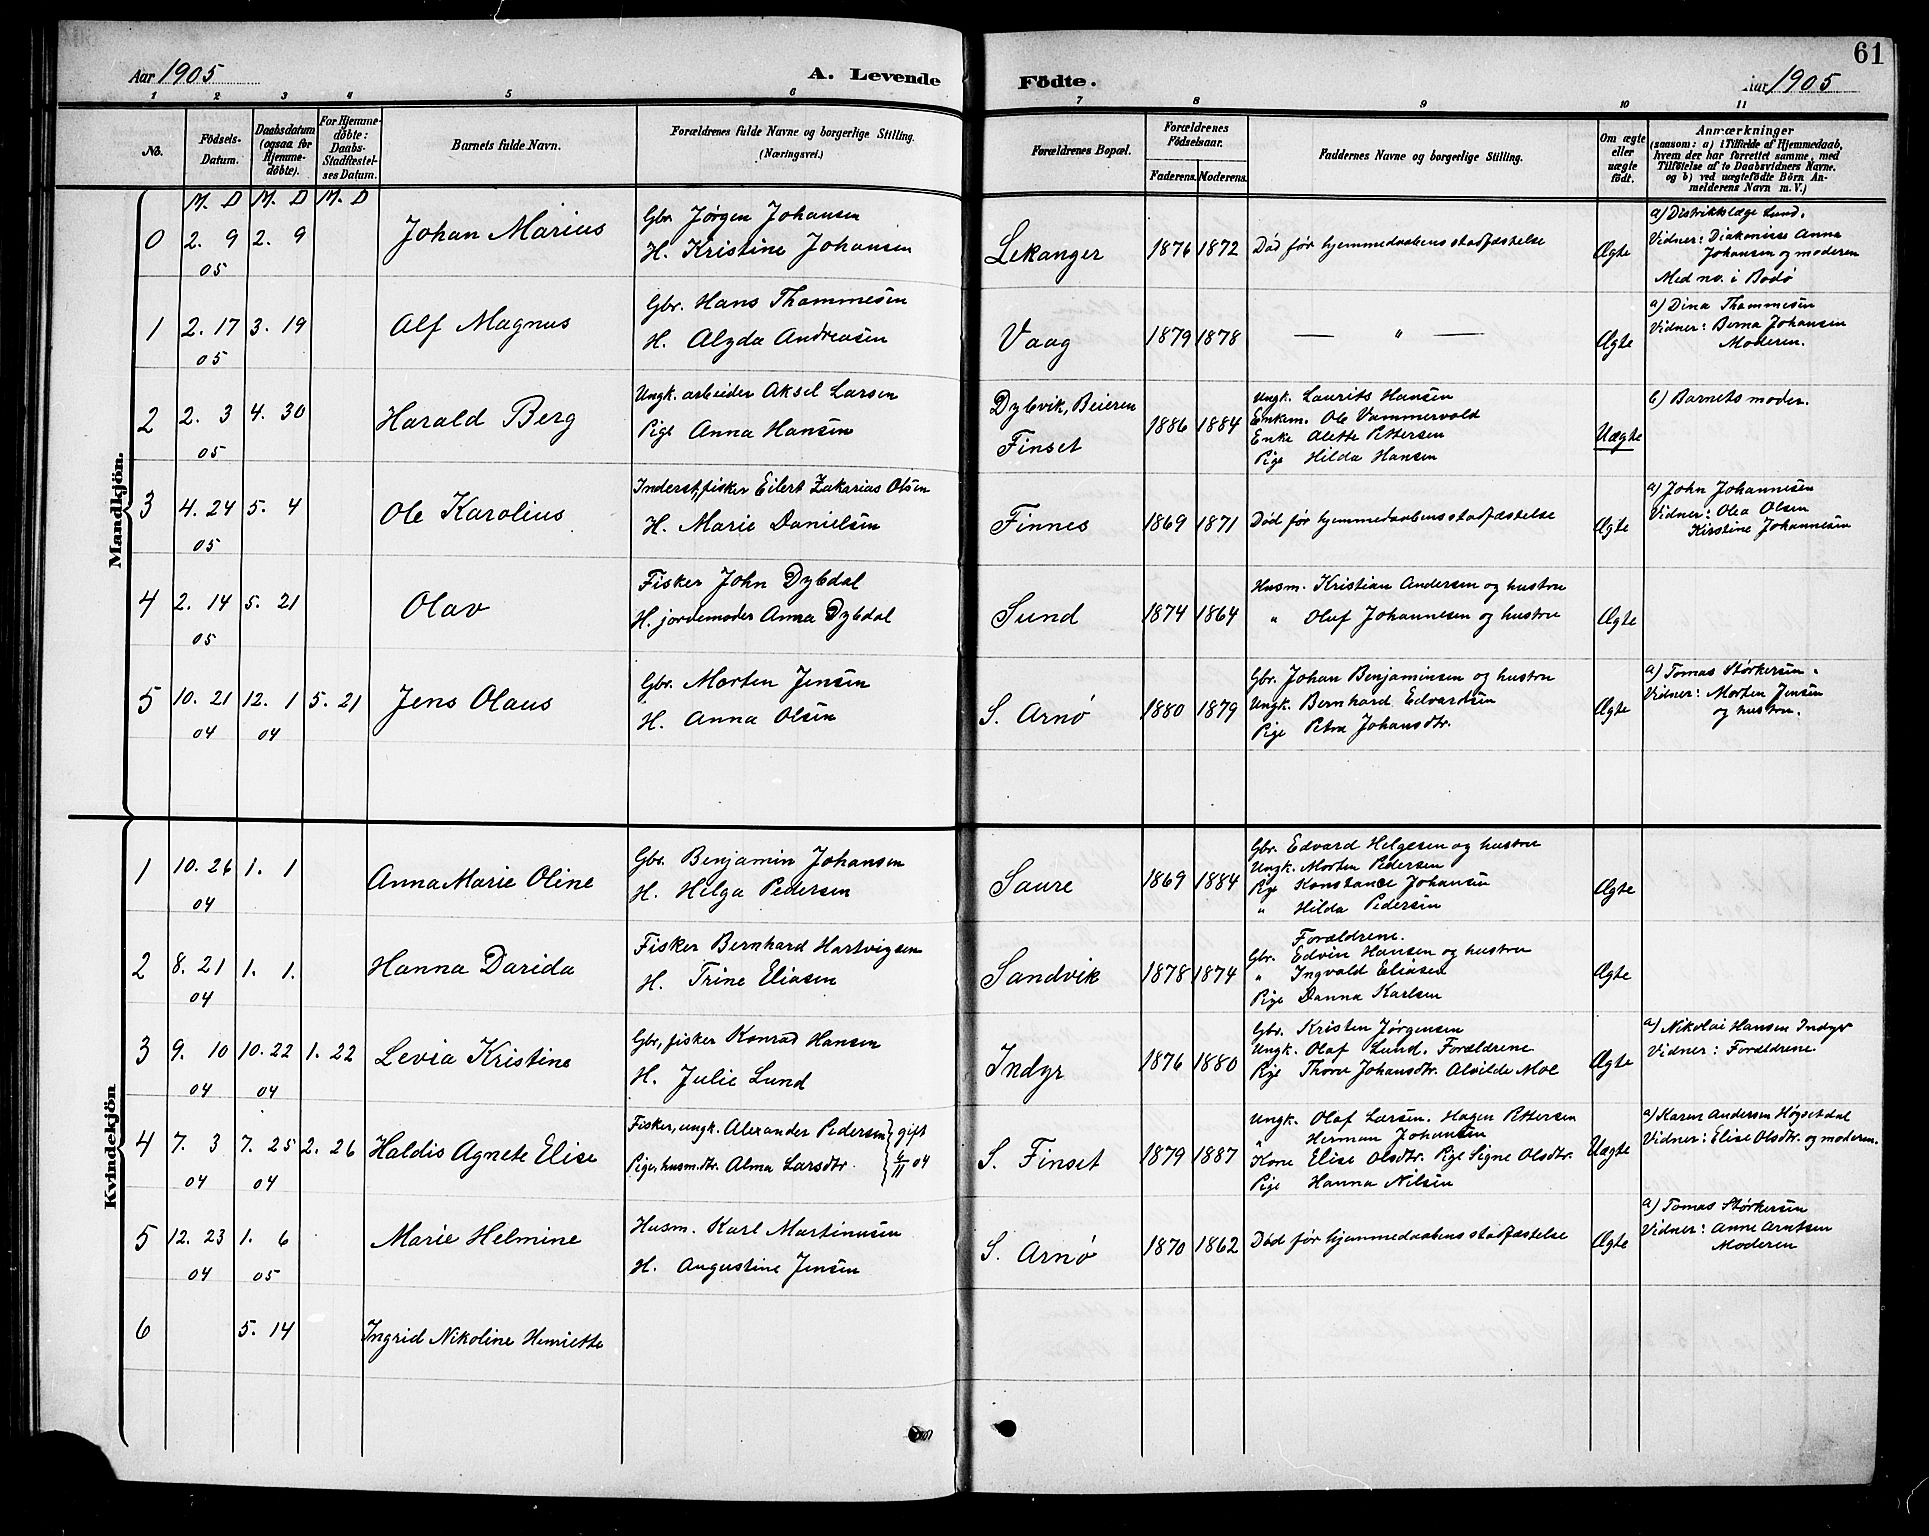 61
Aar 1905
A. Levende
Födte.
Aar 1905
1 2 3 4 5 6 7 8 9 10 11
No.
Födsels-
Datum.
Daabsdatum
(ogsaa for
Hjemme-
døbte).
For Hjemme-
døbte:
Daabs-
Stadfæstel-
ses Datum.
Barnets fulde Navn.
Forældrenes fulde Navne og borgerlige Stilling.
(Næringsvei.)
Forældrenes Bopæl.
Forældrenes
Födselsaar.
Faderens. Moderens.
Faddernes Navne og borgerlige Stilling.
Om ægte
eller
uægte
født.
Anmærkninger
(saasom: a) i Tilfælde af Hjemmedaab,
hvem der har forrettet samme, med
Tilføielse af to Daabsvidners Navne,
og b) ved uægtefödte Börn An-
melderens Navn m. V.)
Mandkjön.
M. D M. D M. D
0 2. 9 05 2. 9 Johan Marius
Gbr. Jørgen Johansen
H. Kristine Johansen
Lekanger 1876 1872 Død før hjemmedaabens stadfæstelse Ægte
a) Distriktslæge Lund.
Vidner: Diakonisse Anna
Johansen og moderen
Med no. i Bodø
1 2. 17 05 3. 19 Alf Magnus
Gbr. Hans Thommesen
H. Alyda Andreasen
Vaag 1879 1878 — " — Ægte
a) Dina Thommesen
Vidner: Berna Johansen
Moderen.
2 2. 3 05 4. 30 Harald Berg
Ungk. arbeider Aksel Larsen
Pige Anna Hansen
Dybvik, Beieren
Finset
1886 1884
Ungk. Laurits Hansen
Enkem. Ole Vammervold
Enke Alette Pettersen
Pige Hilda Hansen
Uægte
b) Barnets moder.
3 4. 24 05 5. 4 Ole Karolius
Inderst, fisker Eilert Zakarias Olsen
H. Marie Danielsen
Finnes 1869 1871 Død før hjemmedaabens stadfæstelse Ægte
a) John Johannesen
Vidner: Olea Olsen
Kirstine Johannesen
4 2. 14 05 5. 21 Olav
Fisker John Dybdal
H. jordemoder Anna Dybdal
Sund 1874 1864
Husm. Kristian Andersen og hustru
" Oluf Johannesen og hustru
Ægte
5 10. 21 04 12. 1 04 5. 21 Jens Olaus
Gbr. Morten Jensen
H. Anna Olsen
S. Arnø 1880 1879
Gbr. Johan Benjaminsen og hustru
Ungk. Bernhard Edvardsen
Pige Petra Johansdtr.
Ægte
a) Tomas Størkersen.
Vidner: Morten Jensen
og hustru.
Kvindekjön
1 10. 26 04 1. 1 Anna Marie Oline
Gbr. Benjamin Johansen
H. Helga Pedersen
Saure 1869 1884
Gbr. Edvard Helgesen og hustru
Ungk. Morten Pedersen
Pige Konstance Johansen
" Hilda Pedersen
Ægte
2 8. 21 04 1. 1. Hanna Darida
Fisker Bernhard Hartvigsen
H. Trine Eliasen
Sandvik 1878 1874
Forældrene.
Gbr. Edvin Hansen og hustru
" Ingvald Eliasen
Pige Danna Karlsen
Ægte
3 9. 10 04 10. 22 04 1. 22 Levia Kristine
Gbr, fisker Konrad Hansen
H. Julie Lund
Indyr 1876 1880
Gbr. Kristen Jørgensen
Ungk. Olaf Lund. Forældrene
Pige Thora Johansdtr. Alvilde Moe
Ægte
a) Nikolai Hansen Indyr
Vidner: Forældrene.
4 7. 3 04 7. 25 04 2. 26 Haldis Agnete Elise
Fisker, ungk. Alexander Pedersen } gift
Pige, husm.dtr. Alma Larsdtr. 04
S. Finset 1879 1887
Ungk. Olaf Larsen. Hagen Pettersen
" Herman Johansen
Kone Elise Olsdtr. Pige Signe Olsdtr.
Pige Hanna Nilsen
Uægte
a) Karen Andersen Høgsetdal
Vidner: Elise Olsdtr. og moderen.
5 12. 23 04 1. 6 05 Marie Helmine
Husm. Karl Martinusen
H. Augustine Jensen
S. Arnø 1870 1862 Død før hjemmedaabens stadfæstelse Ægte
a) Tomas Størkersen
Vidner: Anne Arntsen
Moderen
6 5. 14 Ingrid Nikoline Henriette